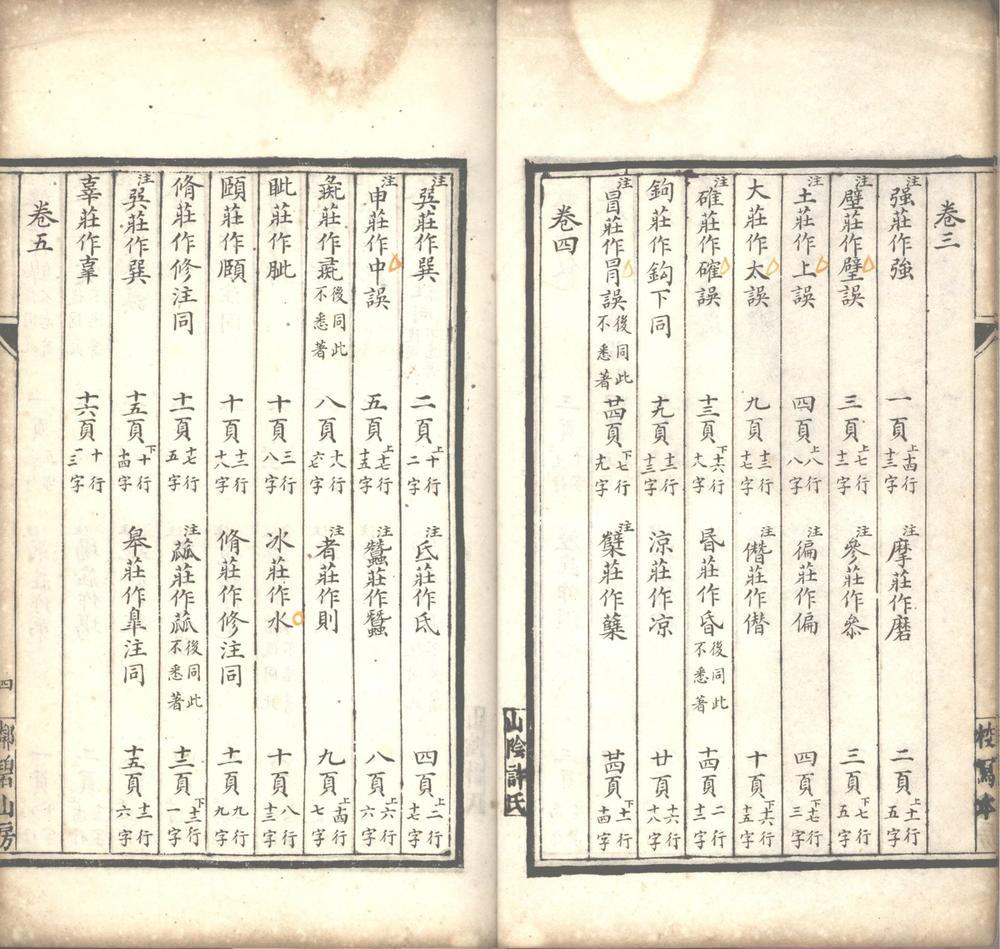 卷三
注強莊作強 一頁上十四行十三字 注摩莊作磨 二頁上十一行五字
注壁莊作璧誤 三頁上十七行十二字 注參莊作叅 三頁下七行五字
注土莊作上誤 四頁上八行八字 注徧莊作偏 四頁上十七行三字
大莊作太誤 九頁十三行十七字 注僭莊作僣 十頁下十六行十五字
注碓莊作確誤 十三頁下十六行十九字 昬莊作昏後同此不悉著 十四頁二行十二字
鉤莊作鈎下同 十九頁十二行十三字 涼莊作凉 廿頁十六行十八字
注冒莊作冐誤後同此不悉著 廿四頁下七行十九字 注糱莊作蘖 廿四頁下十一行十四字
卷四
山陰許氏
校寫本
注吳莊作巽 二頁上十行二字 注氐莊作氏 四頁上二行十七字
注申莊作中誤 五頁上十七行十五字 注蠶莊作蚕 八頁上十六行六字
莊作後同此不悉著 八頁十八行十七字 注者莊作則 九頁上十四行七字
眦莊作眥 十頁三行八字 冰莊作水 十頁八行十三字
頤莊作頥 十頁十三行十八字 脩莊作修注同 十一頁九行九字
脩莊作修注同 十一頁十七行五字 注蓏莊作苽後同此不悉著 十三頁下十二行一字
注吳莊作巽 十五頁下十行十四字 皋莊作臯注同 十五頁十三行六字
辜莊作辠 十六頁十行三字
卷五
四
鄦碧山房